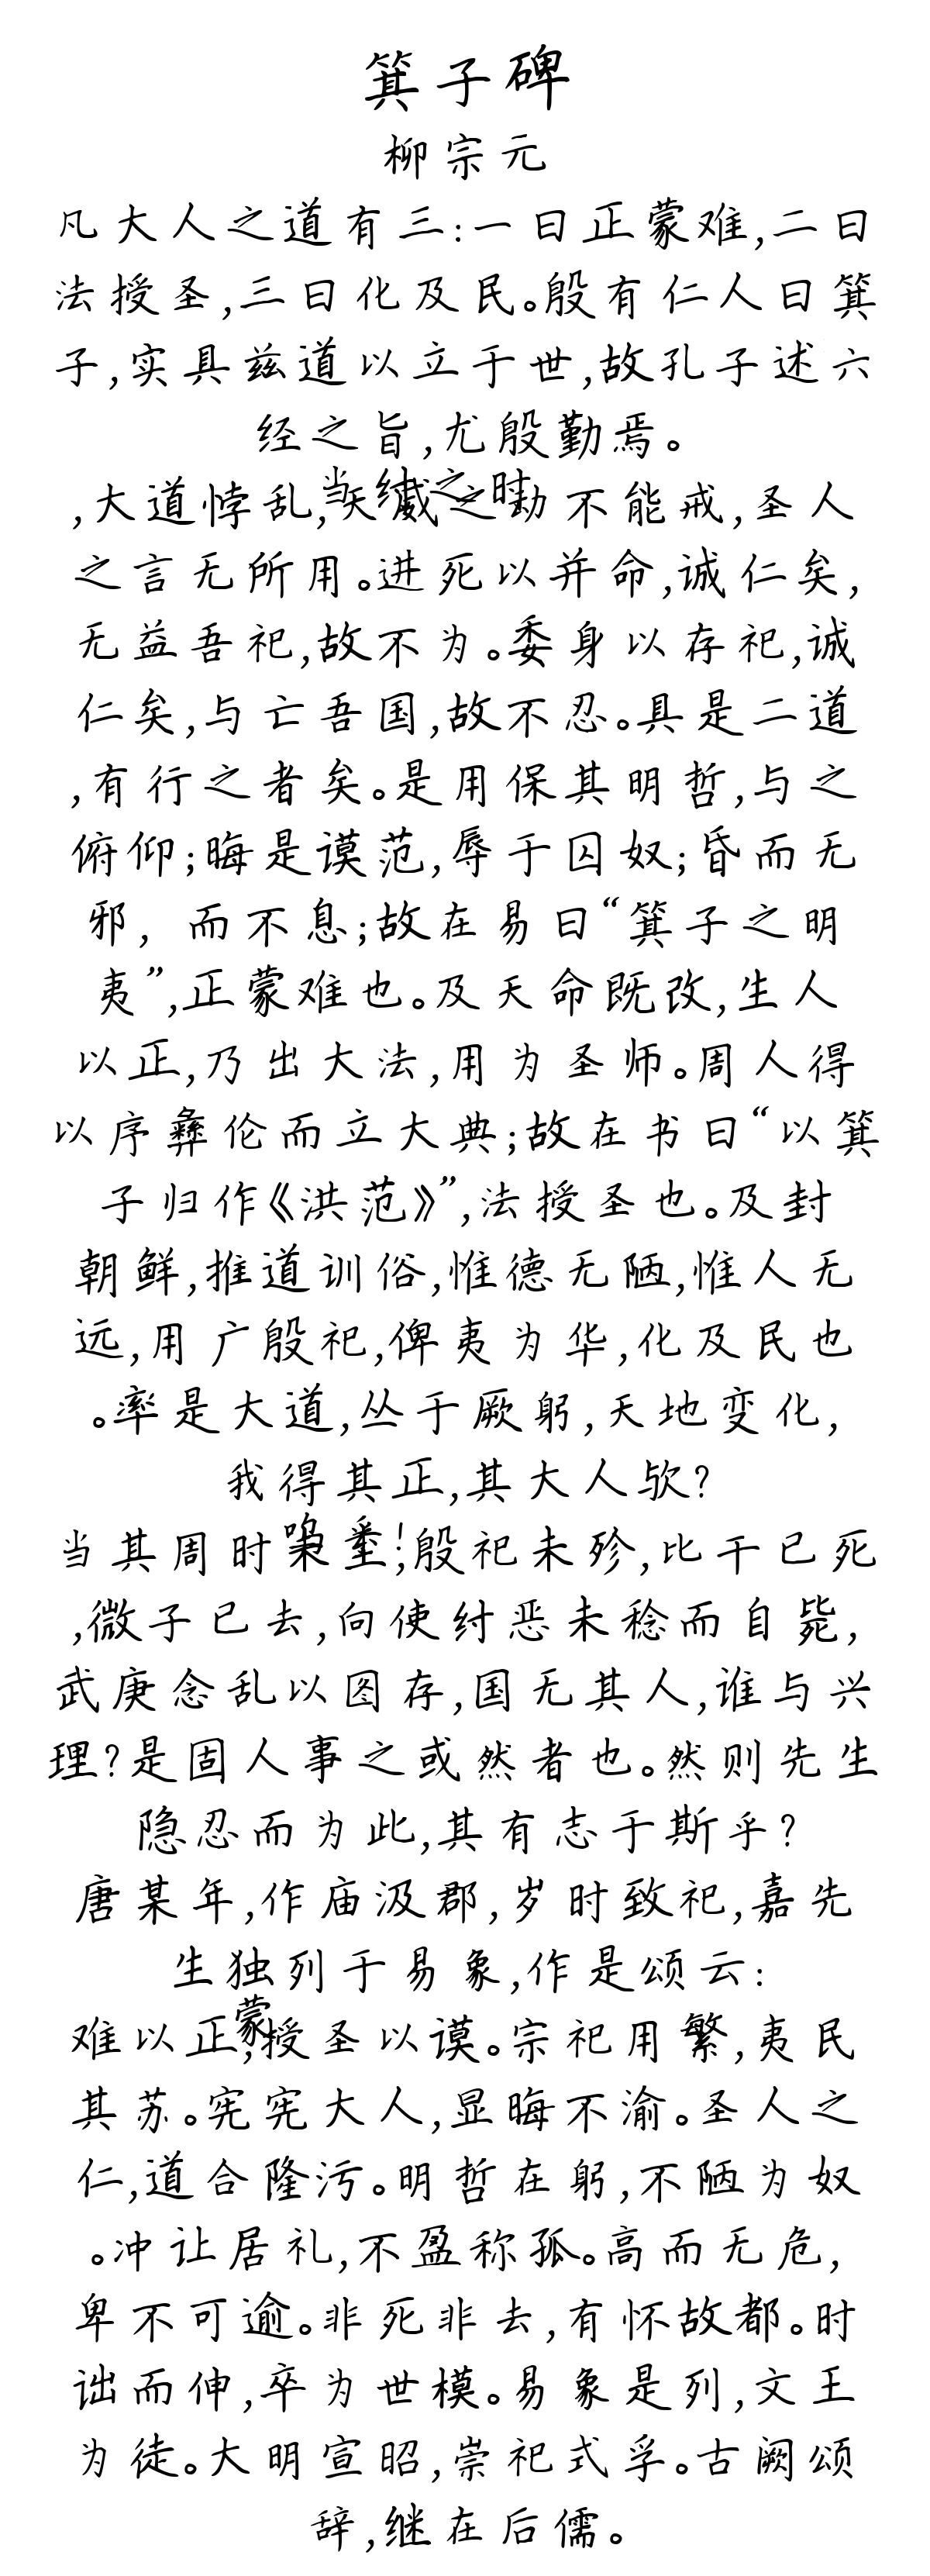 箕子碑
柳宗元
凡大人之道有三:一曰正蒙难,二曰
法授圣,三曰化及民。殷有仁人曰箕
子,实具兹道以立于世,故孔子述六
经之旨,尤殷勤焉。
当纣之时
,大道悖乱,天威之动不能戒,圣人
之言无所用。进死以并命,诚仁矣,
无益吾祀,故不为。委身以存祀,诚
仁矣,与亡吾国,故不忍。具是二道
,有行之者矣。是用保其明哲,与之
俯仰;晦是谟范,辱于囚奴;昏而无
邪, 而不息;故在易曰“箕子之明
夷”,正蒙难也。及天命既改,生人
以正,乃出大法,用为圣师。周人得
以序彝伦而立大典;故在书曰“以箕
子归作《洪范》”,法授圣也。及封
朝鲜,推道训俗,惟德无陋,惟人无
远,用广殷祀,俾夷为华,化及民也
。率是大道,丛于厥躬,天地变化,
我得其正,其大人欤?
呜乎!
当其周时未至,殷祀未殄,比干已死
,微子已去,向使纣恶未稔而自毙,
武庚念乱以图存,国无其人,谁与兴
理?是固人事之或然者也。然则先生
隐忍而为此,其有志于斯乎?
唐某年,作庙汲郡,岁时致祀,嘉先
生独列于易象,作是颂云:
蒙
难以正,授圣以谟。宗祀用繁,夷民
其苏。宪宪大人,显晦不渝。圣人之
仁,道合隆污。明哲在躬,不陋为奴
。冲让居礼,不盈称孤。高而无危,
卑不可逾。非死非去,有怀故都。时
诎而伸,卒为世模。易象是列,文王
为徒。大明宣昭,崇祀式孚。古阙颂
辞,继在后儒。